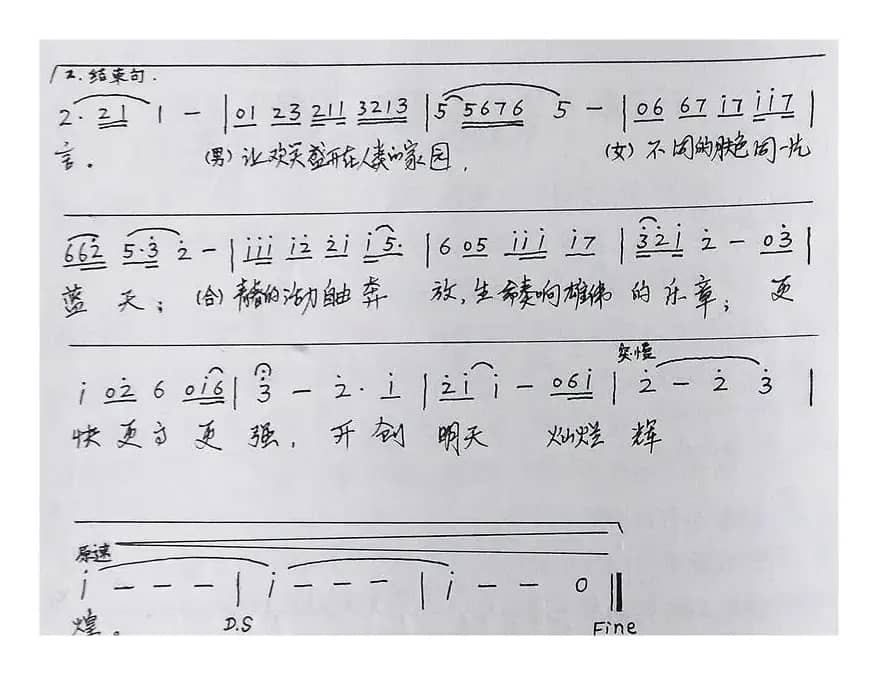 2. 结束句.
2· 2 1 1 — | 01 23 211 3213 | 5 5676 5 — | 06 67 i7 ii7 |
言。 (男) 让欢笑盛开在人类的家园, (女) 不同的肤色同一片
662̇ 5·3̇ 2̇ — | iii i2̇ 2̇i i5· | 6 05 iii i7 | 3̇2̇i 2̇ — 03̇ |
蓝天; (合) 青春的活力自由奔放, 生命奏响雄伟的乐章; 更
突慢
i 02̇ 6 0i6 | 3̇ — 2̇· i | 2̇i i — 06i | 2̇ — 2̇ 3̇ |
快更高更强, 开创明天 灿烂辉
原速
i — — — | i — — — | i — — 0 ‖
煌。 D.S Fine